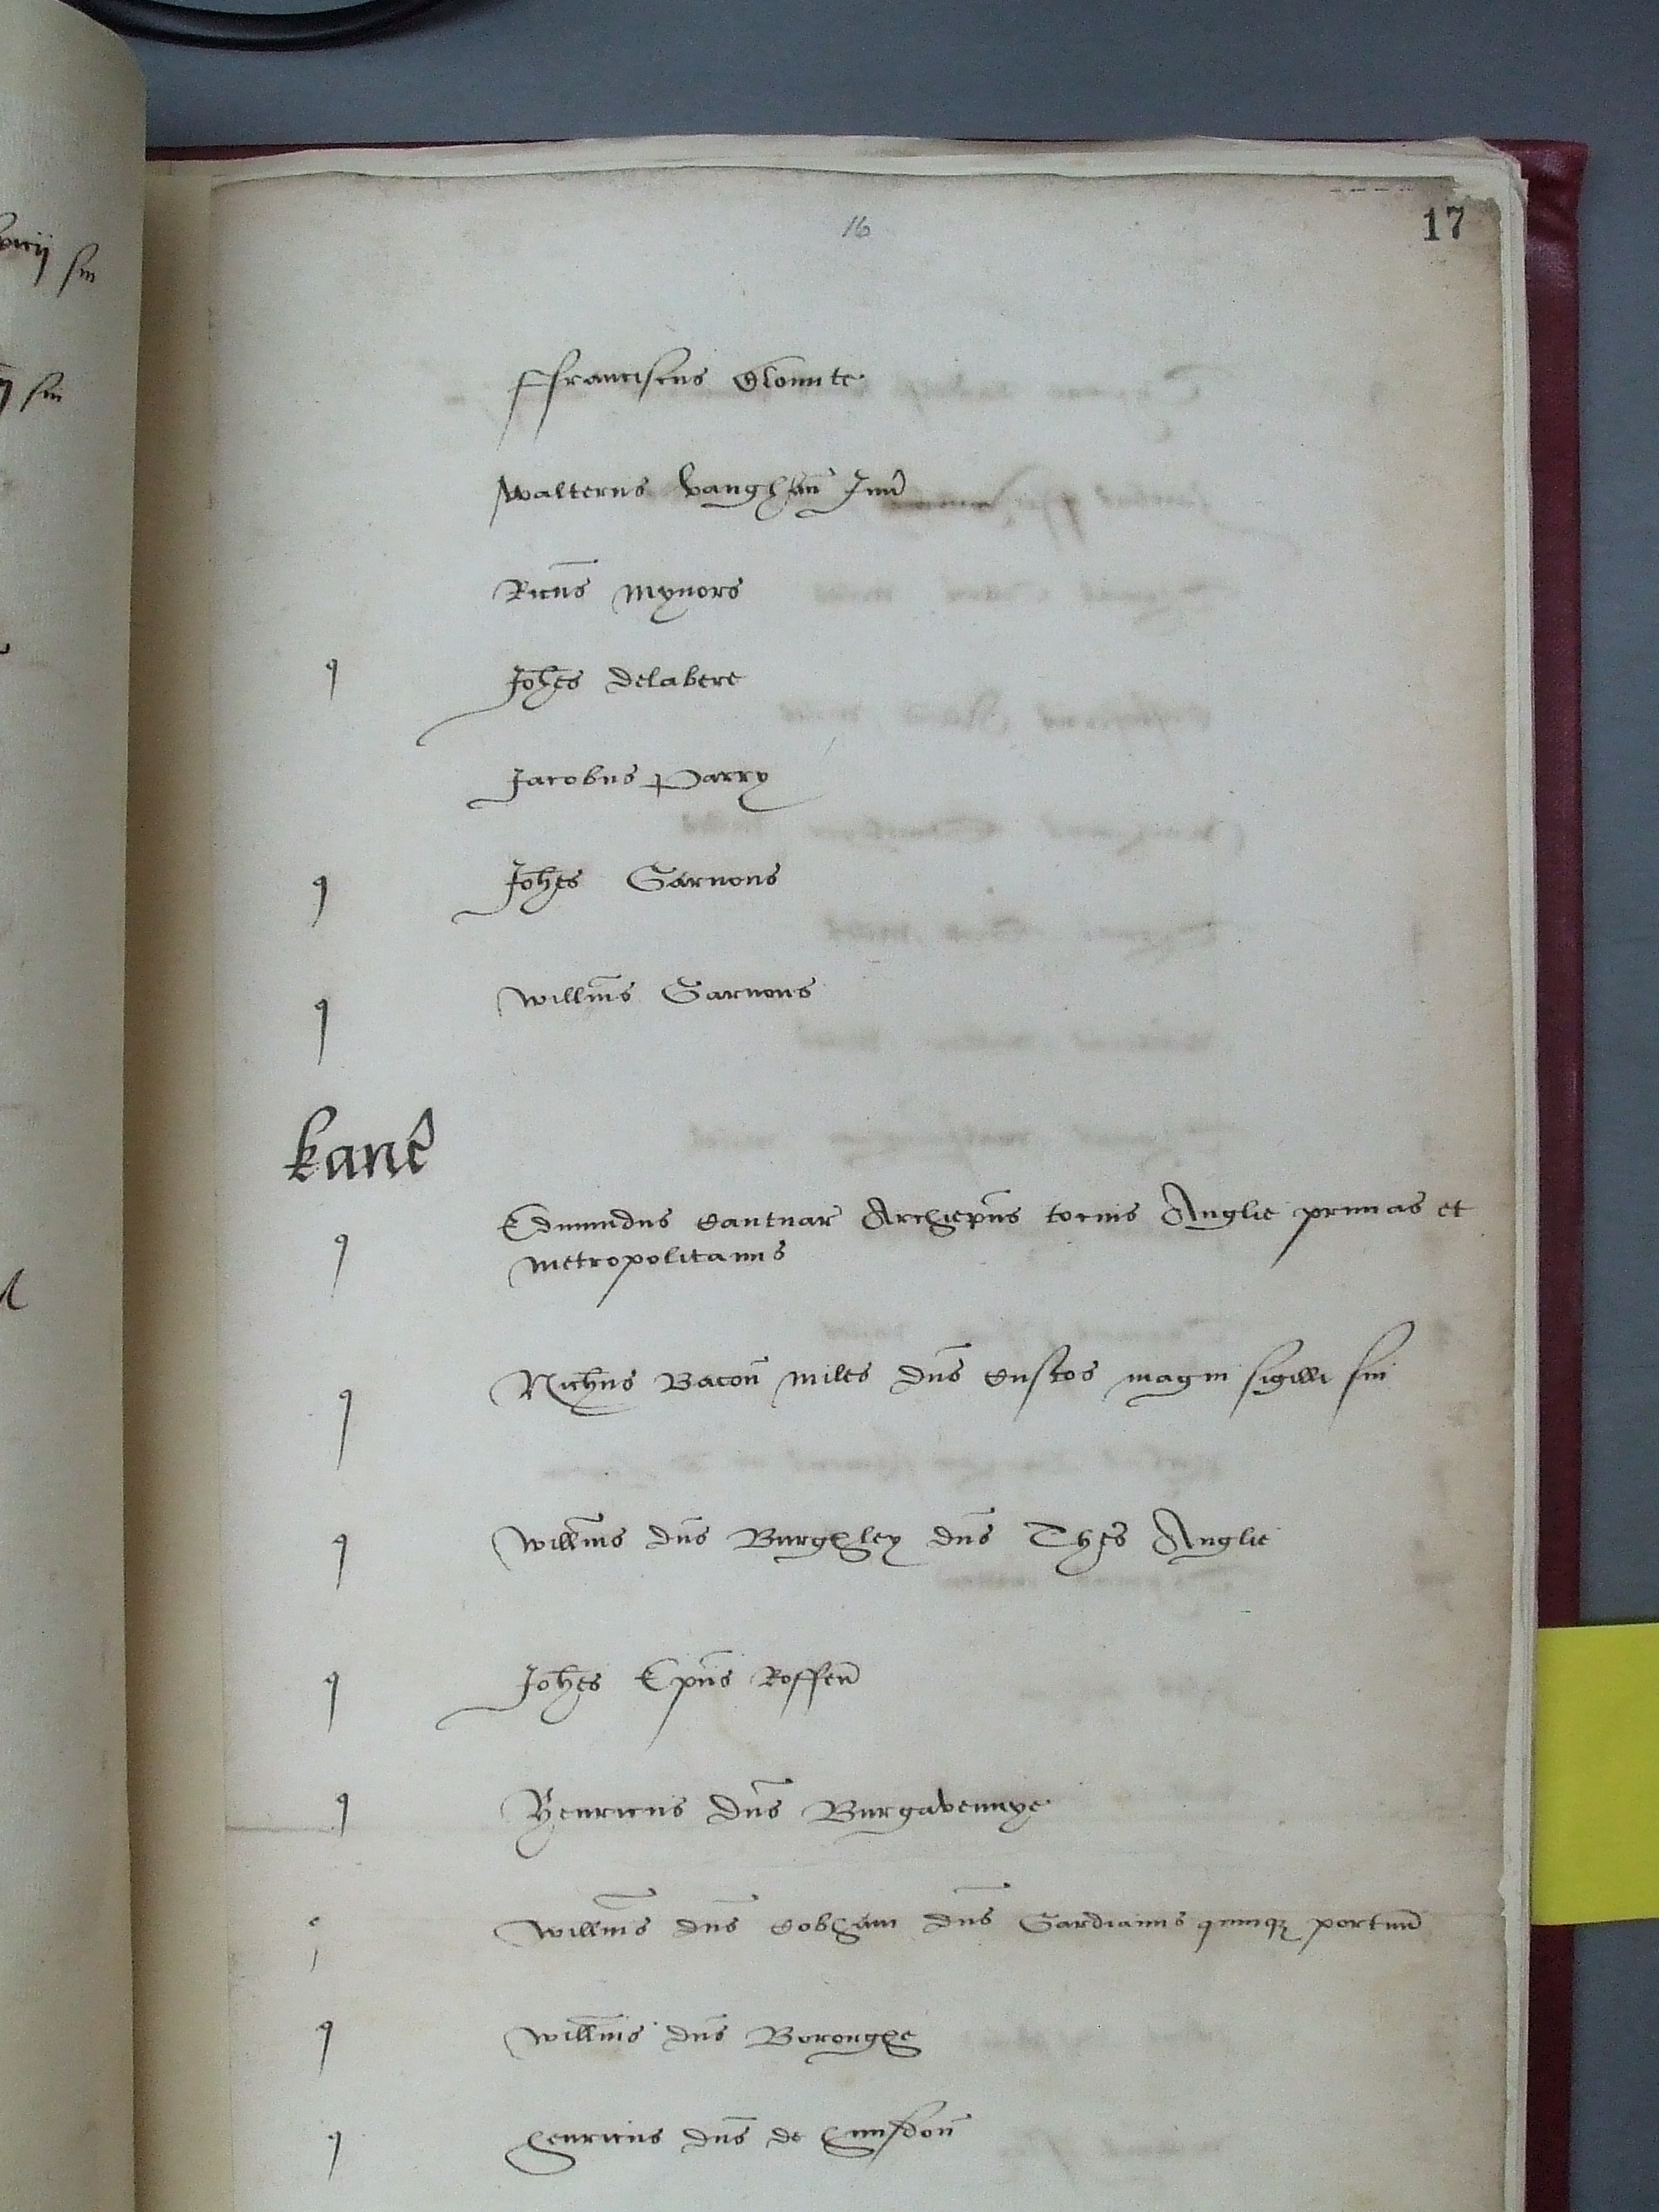 16
17
ffranciscus Blounte
Walterus Vaughan Iun̄
Ricūs Mynors
q Joh̄es Delabere
Jacobus Parry
q Joh̄es Garnons
q Willm̄s Garnons
kanc̄
q Edmundus Cantuar̄ Archiep̄us tocius Anglie primas et
metropolitanus
q Nich̄us Bacon̄ miles dn̄s Custos magni sigilli sui
q Willm̄s dn̄s Burghley dn̄s Thes̄ Anglie
q Joh̄es Ep̄us Roffen̄
q Henricus dn̄s Burgavennye
Willm̄s dn̄s Cobham dn̄s Gardianus quinqꝫ portuū
q Willm̄s dn̄s Boroughe
q Henricus dn̄s de Hunsdon̄